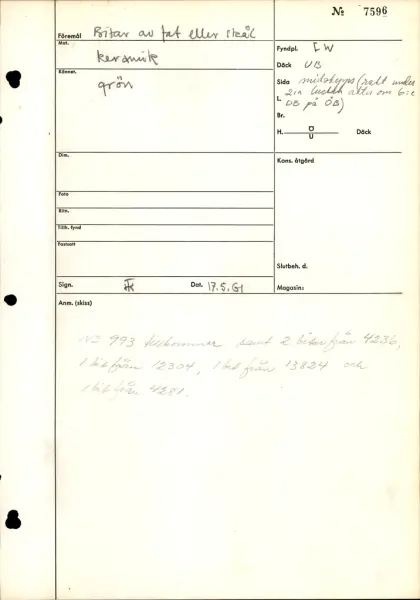 № 7596
Föremål Bitar av fat eller skål
Mat. keramik
Kännet. grön
Fyndpl. EW
Däck UB
Sida midskepps (rätt under
L. 2:a luckan akter om 6:e
UB på ÖB)
Br.
H. Ö
U Däck
Dim.
Kons. åtgärd
Foto
Ritn.
Tillh. fynd
Fastsatt
Slutbeh. d.
Sign. Dat. 17.5.61
Magasin:
Anm. (skiss)
№ 993 tillkommer samt 2 bitar från 4236,
1 bit från 12304, 1 bit från 13824 och
1 bit från 4281.